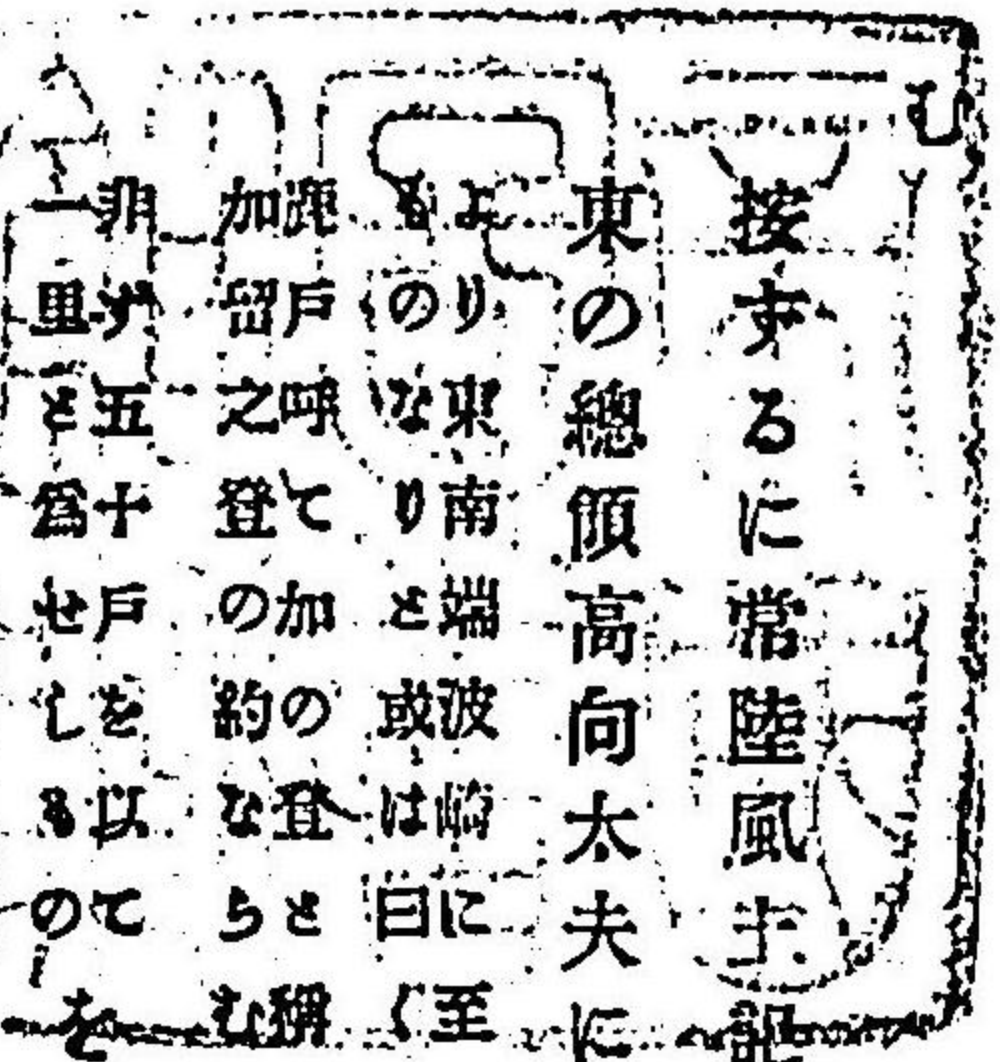 む
按ずるに常陸風土記
東の總領高向太夫に
より東南端波崎に至
るのなりと或は曰く
鹿戸呼て加の登と稱
加留之登の約ならむ
非ず五十戸を以て
一里と爲せしものを